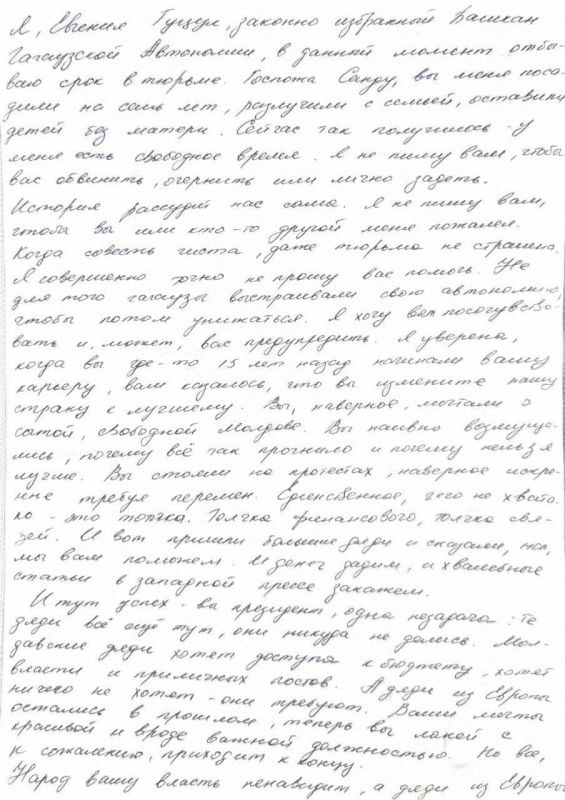 Я, Евгения Гуцул, законно избранный Башкан
Гагаузской Автономии, в данный момент отбы-
ваю срок в тюрьме. Госпожа Санду, вы меня поса-
дили на семь лет, разлучили с семьей, оставили
детей без матери. Сейчас так получилось - у
меня есть свободное время. Я не пишу вам, чтобы
вас обвинить, очернить или лично задеть.
История рассудит нас сама. Я не пишу вам,
чтобы вы или кто-то другой меня пожалел.
Когда совесть чиста, даже тюрьма не страшна.
Я совершенно точно не прошу вас помочь. Не
для того гагаузы выстраивали свою автономию,
чтобы потом унижаться. Я хочу вам посочувство-
вать и, может, вас предупредить. Я уверена,
когда вы где-то 15 лет назад начинали вашу
карьеру, вам казалось, что вы измените нашу
страну к лучшему. Вы, наверное, мечтали о
сытой, свободной Молдове. Вы наивно возмуща-
лись, почему всё так прогнило и почему нельзя
лучше. Вы стояли на протестах, наверное искре-
нне требуя перемен. Единственное, чего не хвата-
ло - это толчка. Толчка финансового, толчка свя-
зей. И вот пришли большие дяди и сказали, мол,
мы вам поможем. И денег дадим, и хвалебные
статьи в западной прессе закажем.
И тут успех - вы президент, одна незадача: те
дяди всё ещё тут, они никуда не делись. Мол-
давские дяди хотят доступа к бюджету, хотят
власти и приличных постов. А дяди из Европы
ничего не хотят - они требуют. Ваши мечты
остались в прошлом, теперь вы лакей с
красивой и вроде важной должностью. Но все,
к сожалению, приходит к концу.
Народ вашу власть ненавидит, а дяди из Европы